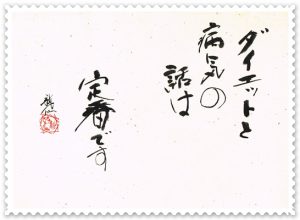 ダイエットと
病気の
話は
定番です